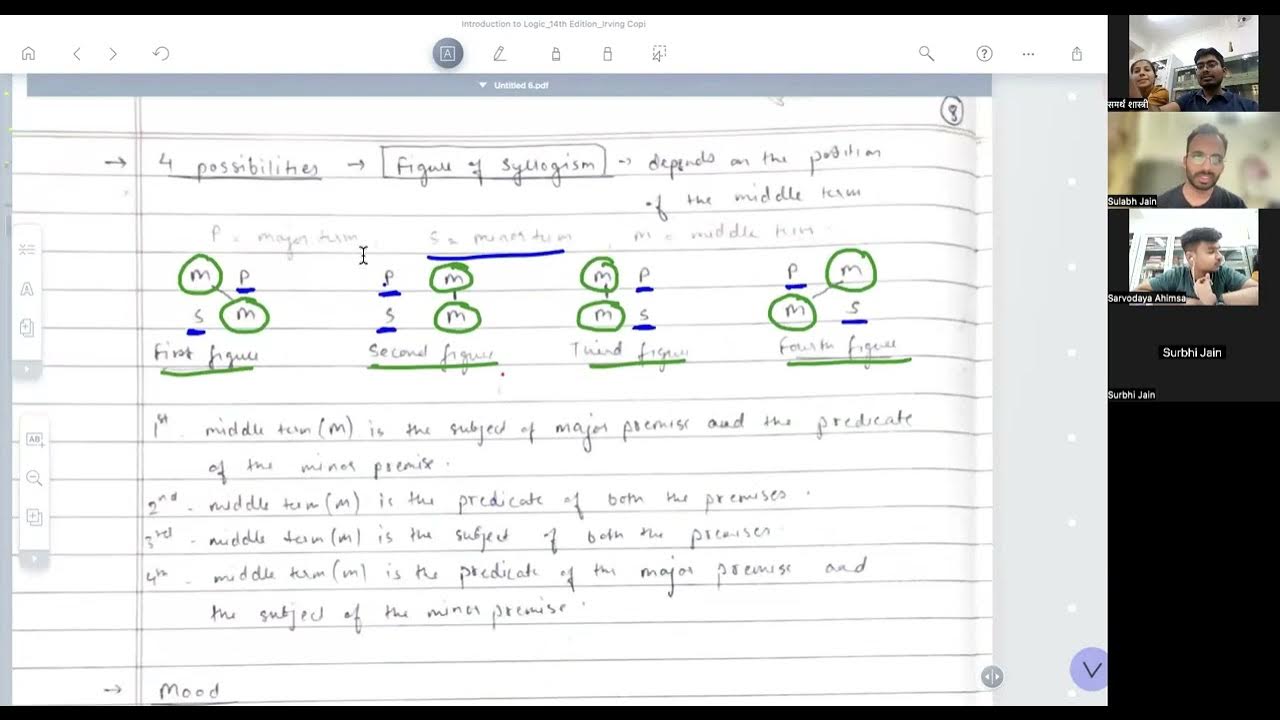 Introduction to Logic_14th Edition_Irving Copi
Untitled 6.pdf
8
→ 4 possibilities → Figure of Syllogism → depends on the position
of the middle term
P = major term, S = minor term, m = middle term.
m P P m m P P m
S m S m m S m S
First figure Second figure Third figure Fourth figure
1st. middle term (m) is the subject of major premise and the predicate
of the minor premise.
2nd - middle term (m) is the predicate of both the premises.
3rd - middle term (m) is the subject of both the premises.
4th - middle term (m) is the predicate of the major premise and
the subject of the minor premise.
→ Mood
समर्थ शास्त्री
Sulabh Jain
Sarvodaya Ahimsa
Surbhi Jain
Surbhi Jain